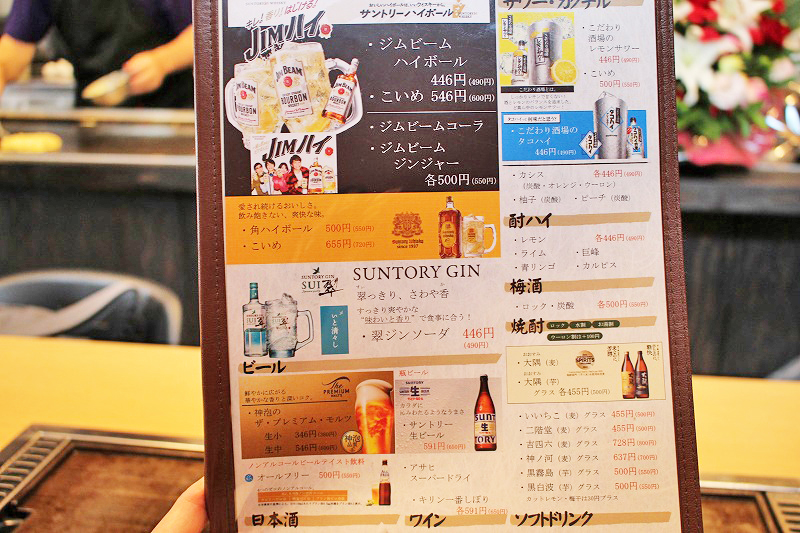 サントリーハイボール
キレ!
はじける!
JIMハイ。
JIM BEAM
BOURBON
・ジムビーム
ハイボール
446円(490円)
・こいめ 546円(600円)
・ジムビームコーラ
・ジムビーム
ジンジャー
各500円(550円)
JIMハイ。
愛され続けるおいしさ。
飲み飽きない、爽快な味。
・角ハイボール 500円(550円)
・こいめ 655円(720円)
Suntory Whisky
since 1937
SUNTORY GIN
SUI 翠
SUNTORY GIN
翠っきり、さわや香
すっきり爽やかな
"味わいと香り"で食事に合う!
・翠ジンソーダ 446円
(490円)
ビール
鮮やかに広がる
華やかな香りと深いコク。
The PREMIUM
・神泡の
ザ・プレミアム・モルツ
生小 346円(380円)
生中 546円
神泡
ノンアルコールビールテイスト飲料
オールフリー 500円(550円)
瓶ビール
SUNTORY
生
カラダに
・サントリー
生ビール
591円(650円)
・アサヒ
スーパードライ
・キリン一番しぼり
各591円(650円)
日本酒
ワイン
サワー・カクテル
・こだわり
酒場の
レモンサワー
446円(490円)
・こいめ
500円(550円)
こだわり酒場とは、
・こだわり酒場の
タコハイ
446円(490円)
タコハイ
・カシス 各446円(490円)
(炭酸・オレンジ・ウーロン)
・柚子(炭酸) ・ピーチ(炭酸)
酎ハイ
・レモン 各446円(490円)
・ライム ・巨峰
・青リンゴ ・カルピス
梅酒
・ロック・炭酸 各500円(550円)
焼酎 ロック 水割 お湯割
ウーロン割は+100円
おおすみ
・大隅(麦)
おおすみ
・大隅(芋)
グラス 各455円(500円)
SPIRITS
・いいちこ(麦)グラス 455円(500円)
・二階堂(麦)グラス 455円(500円)
・吉四六(麦)グラス 728円(800円)
・神ノ河(麦)グラス 637円(700円)
・黒霧島(芋)グラス 500円(550円)
・黒白波(芋)グラス 500円(550円)
カットレモン・梅干は30円プラス
ソフトドリンク